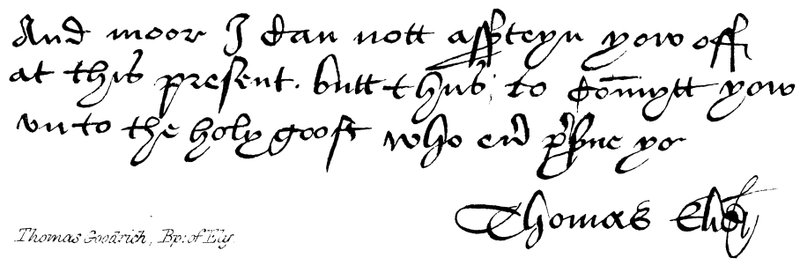 And moor I can nott assteyn yow off
at this present. butt thus to Comytt yow
vnto the holy goost who yo
Thomas
Thomas Goodrich, Bp: of Ely